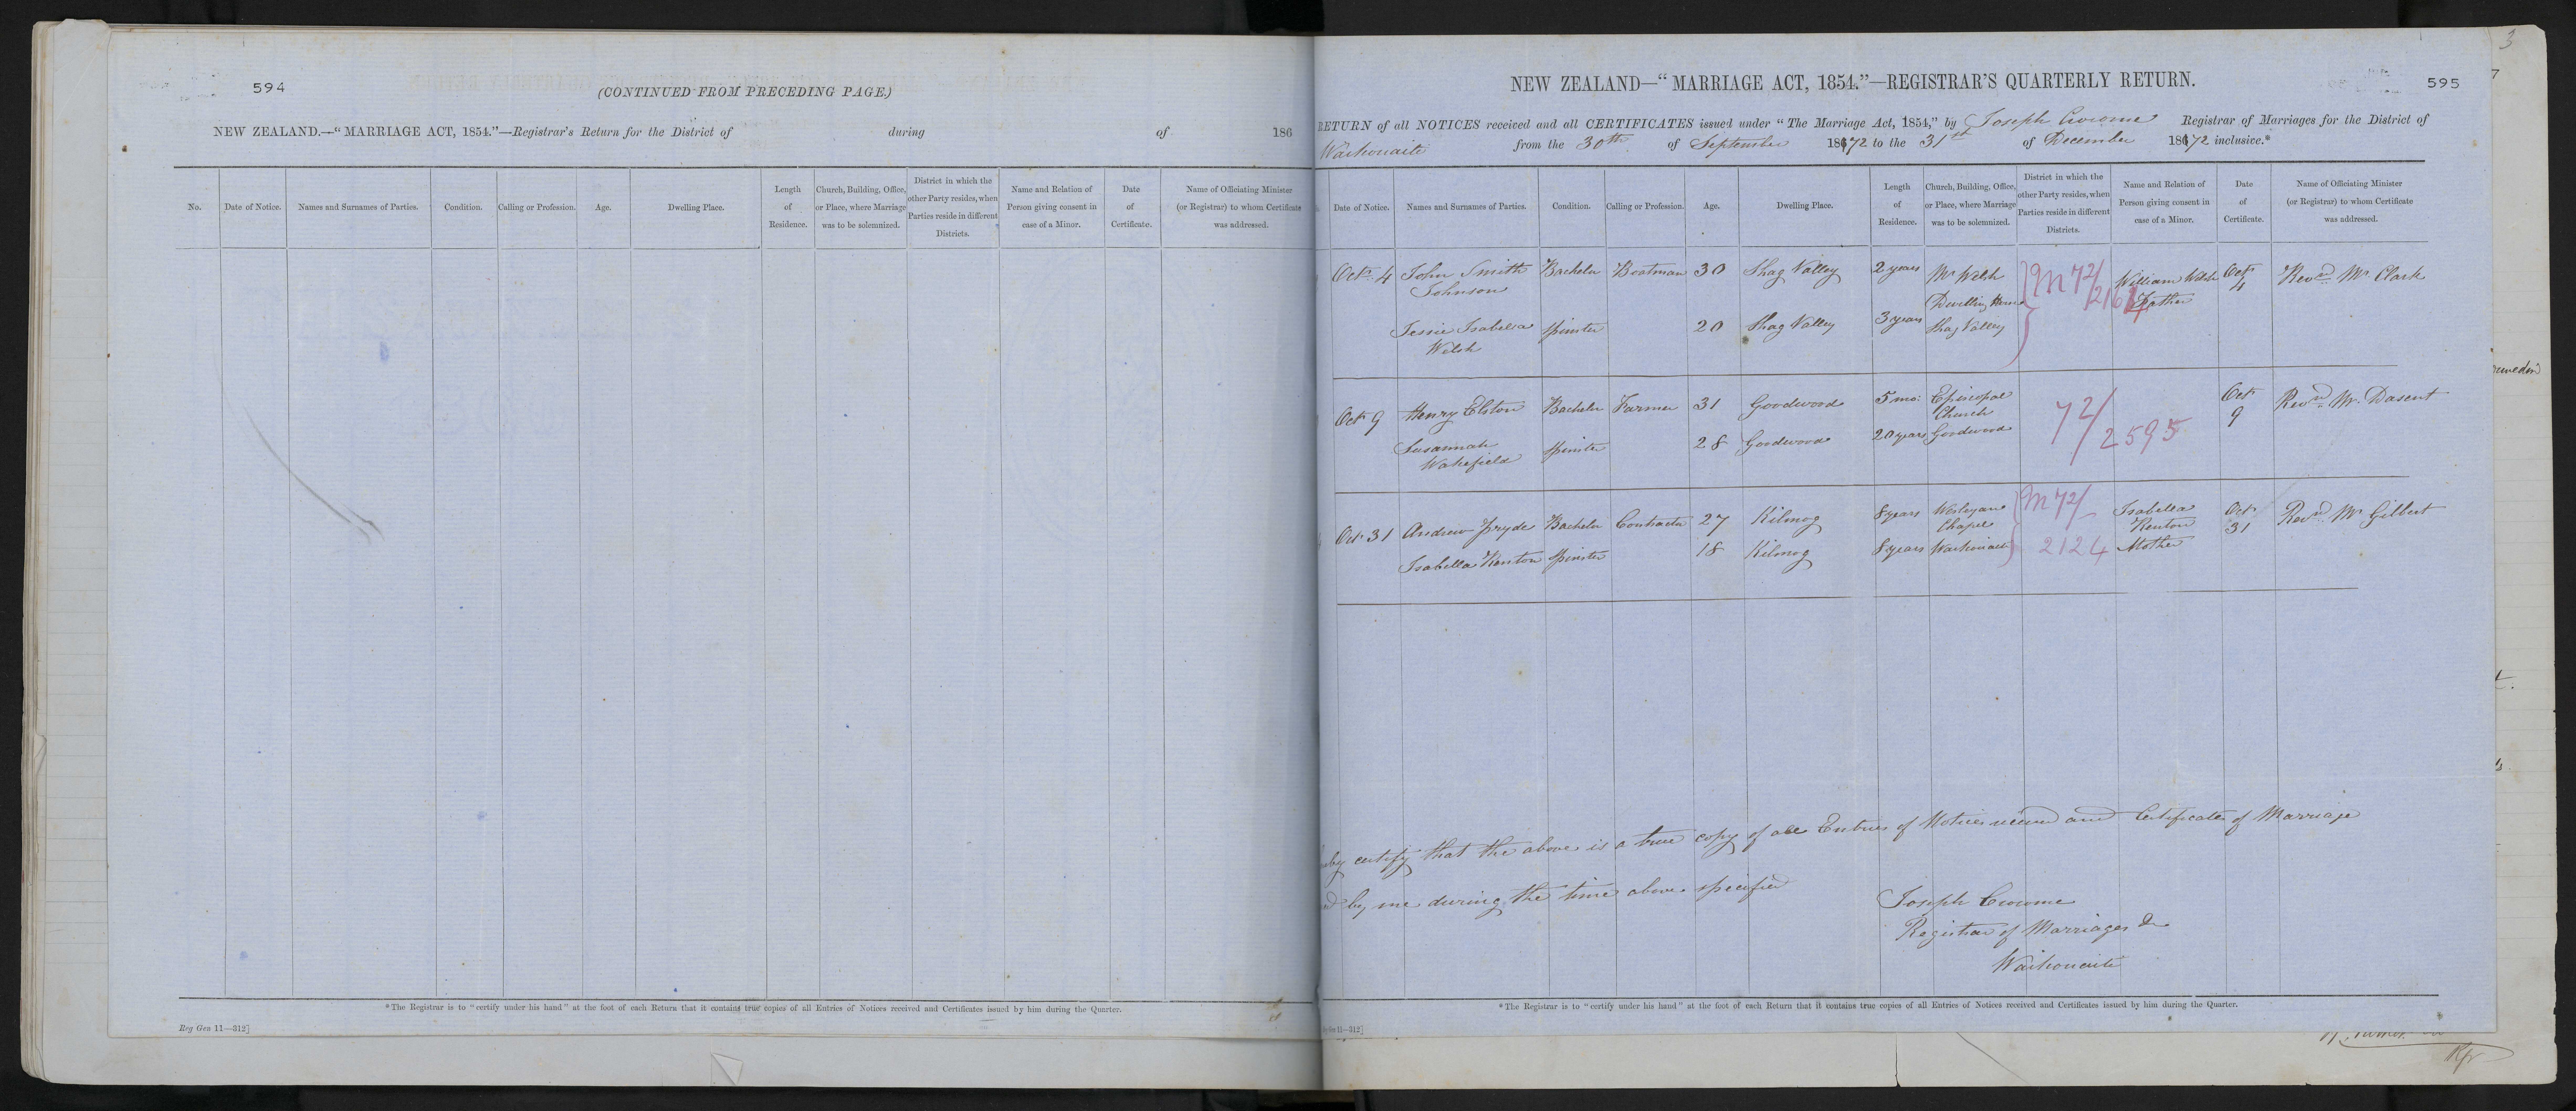 594
(CONTINUED FROM PRECEDING PAGE.)
NEW ZEALAND.—"MARRIAGE ACT, 1854."—Registrar's Return for the District of during of 186
No. Date of Notice. Names and Surnames of Parties. Condition. Calling or Profession. Age. Dwelling Place. Length of Residence. Church, Building, Office, or Place, where Marriage was to be solemnized. District in which the other Party resides, when Parties reside in different Districts. Name and Relation of Person giving consent in case of a Minor. Date of Certificate. Name of Officiating Minister (or Registrar) to whom Certificate was addressed.
*The Registrar is to "certify under his hand" at the foot of each Return that it contains true copies of all Entries of Notices received and Certificates issued by him during the Quarter.
Reg Gen 11—312]
3
595
NEW ZEALAND—"MARRIAGE ACT, 1854."—REGISTRAR'S QUARTERLY RETURN.
RETURN of all NOTICES received and all CERTIFICATES issued under "The Marriage Act, 1854," by Joseph Crocome Registrar of Marriages for the District of
Waikouaiti from the 30th of September 1872 to the 31st of December 1872 inclusive.*
Date of Notice. Names and Surnames of Parties. Condition. Calling or Profession. Age. Dwelling Place. Length of Residence. Church, Building, Office, or Place, where Marriage was to be solemnized. District in which the other Party resides, when Parties reside in different Districts. Name and Relation of Person giving consent in case of a Minor. Date of Certificate. Name of Officiating Minister (or Registrar) to whom Certificate was addressed.
Octr 4 John Smith Bachelor Boatman 30 Shag Valley 2 years Mr Welsh M 72/ William Welsh Octr Revd Mr. Clark
Johnson Dwelling House Father 4
Jessie Isabella Spinster 20 Shag Valley 3 years Shag Valley
Welsh
Octr 9 Henry Elston Bachelor Farmer 31 Goodwood 5 mo: Episcopal 72/2595 Octr Revd Mr. Dasent
Church 9
Susannah Spinster 28 Goodwood 20 years Goodwood
Wakefield
Octr 31 Andrew Pryde Bachelor Contractor 27 Kilmog 8 years Wesleyan M 72/ Isabella Octr Revd Mr Gilbert
Chapel Renton 31
Isabella Renton Spinster 18 Kilmog 8 years Waikouaiti 2124 Mother
certify that the above is a true copy of all Entries of Notices received and Certificates of Marriage
by me during the time above specified
Joseph Crocome
Registrar of Marriages &c
Waikouaiti
*The Registrar is to "certify under his hand" at the foot of each Return that it contains true copies of all Entries of Notices received and Certificates issued by him during the Quarter.
11—312]